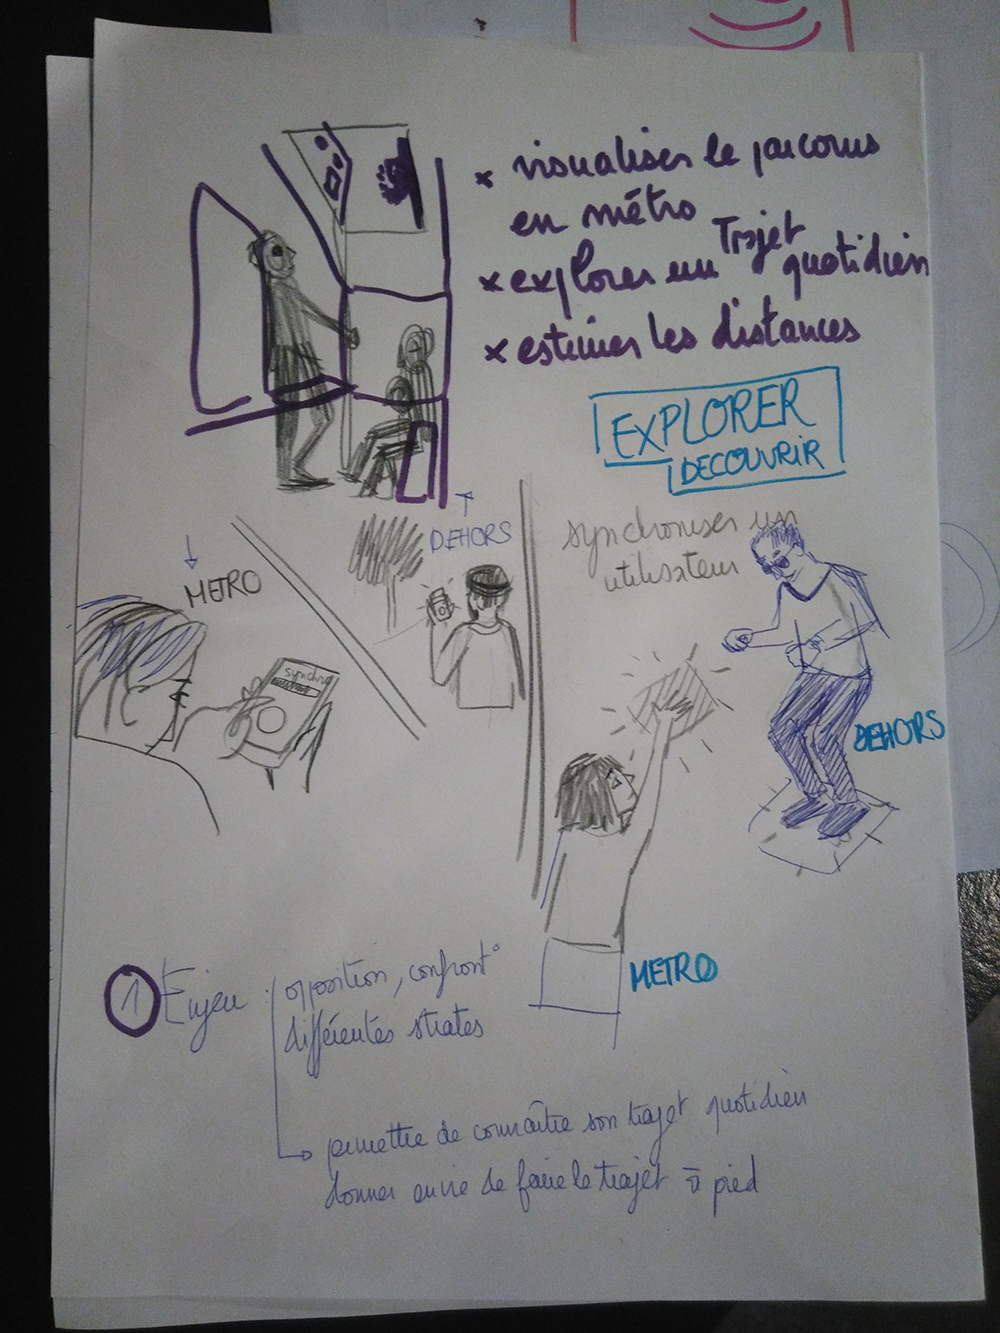 × visualiser le parcours
en métro
× explorer un Trajet quotidien
× estimer les distances
EXPLORER
DECOUVRIR
DEHORS
METRO
synchro
synchroniser un
utilisateur
DEHORS
METRO
1 Enjeu : opposition, confront°
différentes strates
permettre de connaître son trajet quotidien
donner envie de faire le trajet à pied